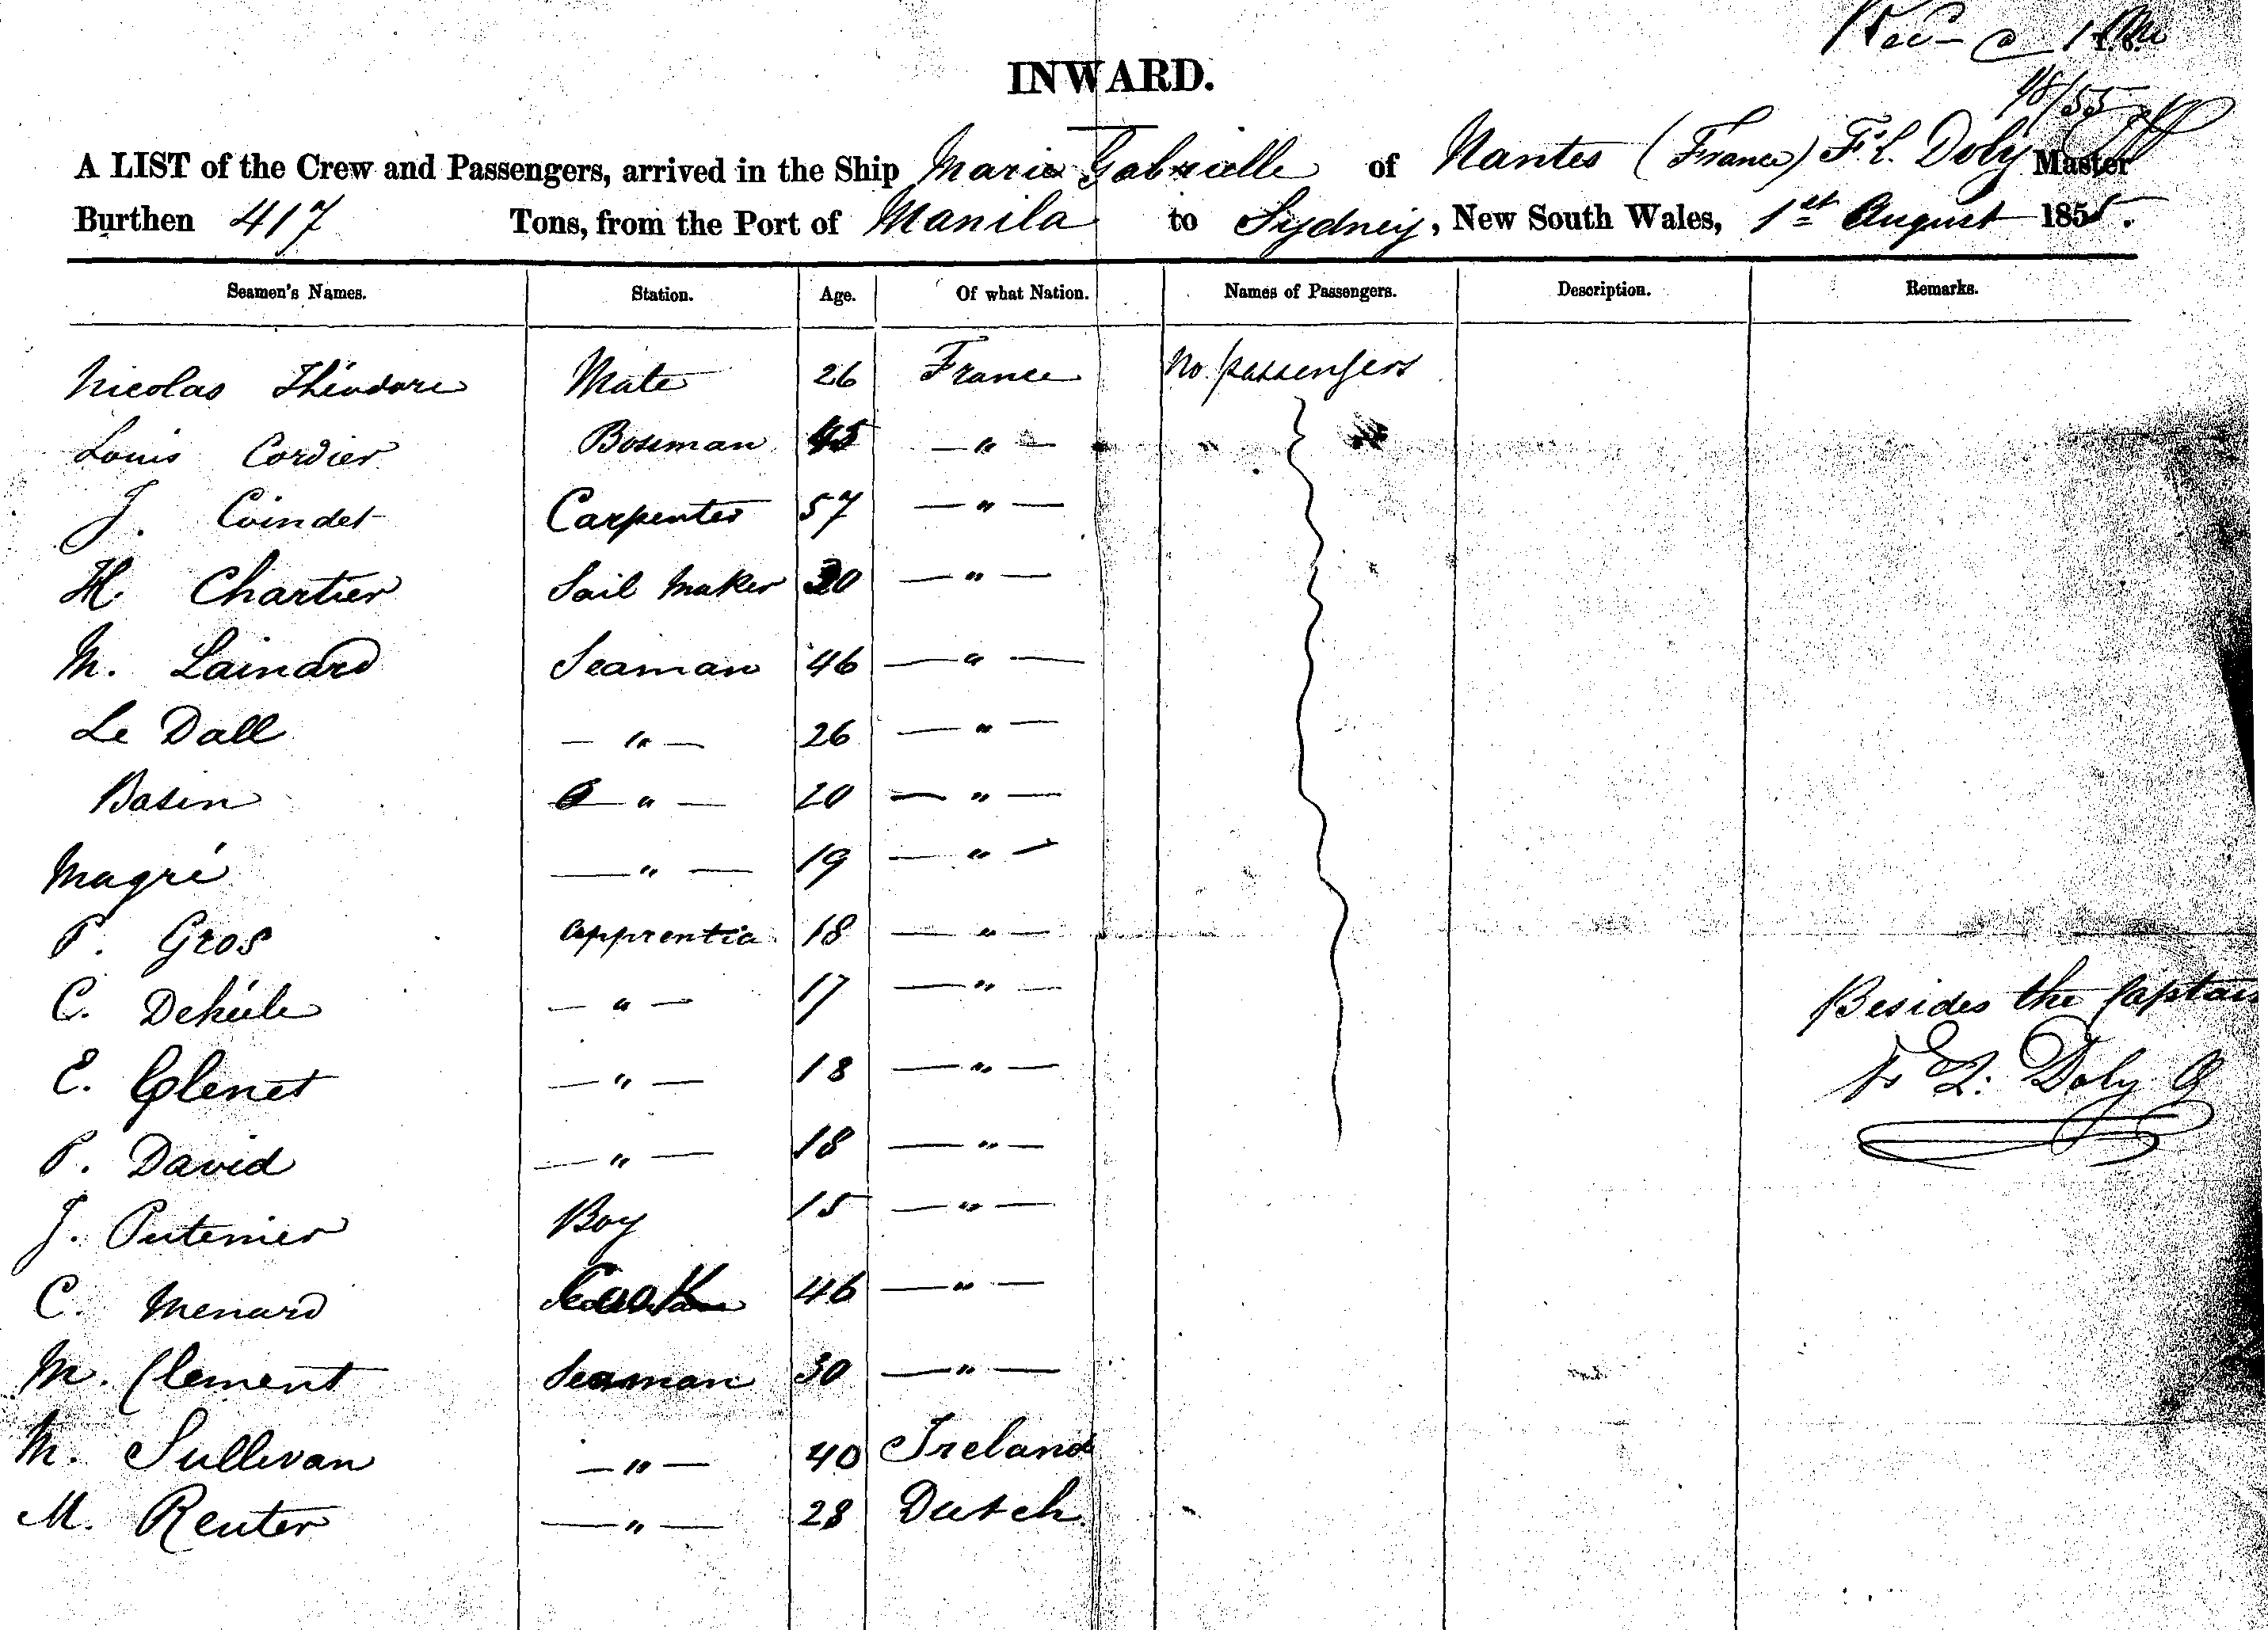 INWARD.
1/8/55
A LIST of the Crew and Passengers, arrived in the Ship Marie Gabrielle of Nantes (France) F. L. Doby Master
Burthen 417 Tons, from the Port of Manila to Sydney, New South Wales, 1st August 1855.
Seamen's Names. Station. Age. Of what Nation. Names of Passengers. Description. Remarks.
Nicolas Théodore Mate 26 France No passengers
Louis Cordier Boseman 45 — " —
J. Coindet Carpenter 57 — " —
H. Chartier Sail Maker 30 — " —
M. Lainard Seaman 46 — " —
Le Dall — " — 26 — " —
Basin — " — 20 — " —
Magré — " — 19 — " —
P. Gros apprentia 18 — " —
C. — " — 17 — " —
Besides the Captain
E. Clenet — " — 18 — " —
F L. Doby
P. David — " — 18 — " —
J. Putenier Boy 15 — " —
C. Menard Cook 46 — " —
M. Clement Seaman 30 — " —
M. Sullivan — " — 40 Ireland
M. Reuter — " — 28 Dutch